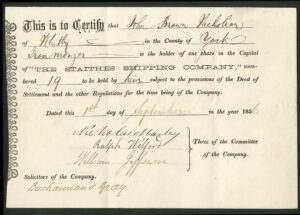 This is to Certify that John Brown Nicholson
of Whitby in the County of York
Iron monger is the holder of one share in the Capital
of "THE STAITHES SHIPPING COMPANY," num-
bered 19 to be held by him subject to the provisions of the Deed of
Settlement and the other Regulations for the time being of the Company.
Dated this 1st day of September in the year 1856
Nicholas Morley
Ralph Welford
William Jefferson
Three of the Committee
of the Company.
Solicitors of the Company.
Buchannan & Gray